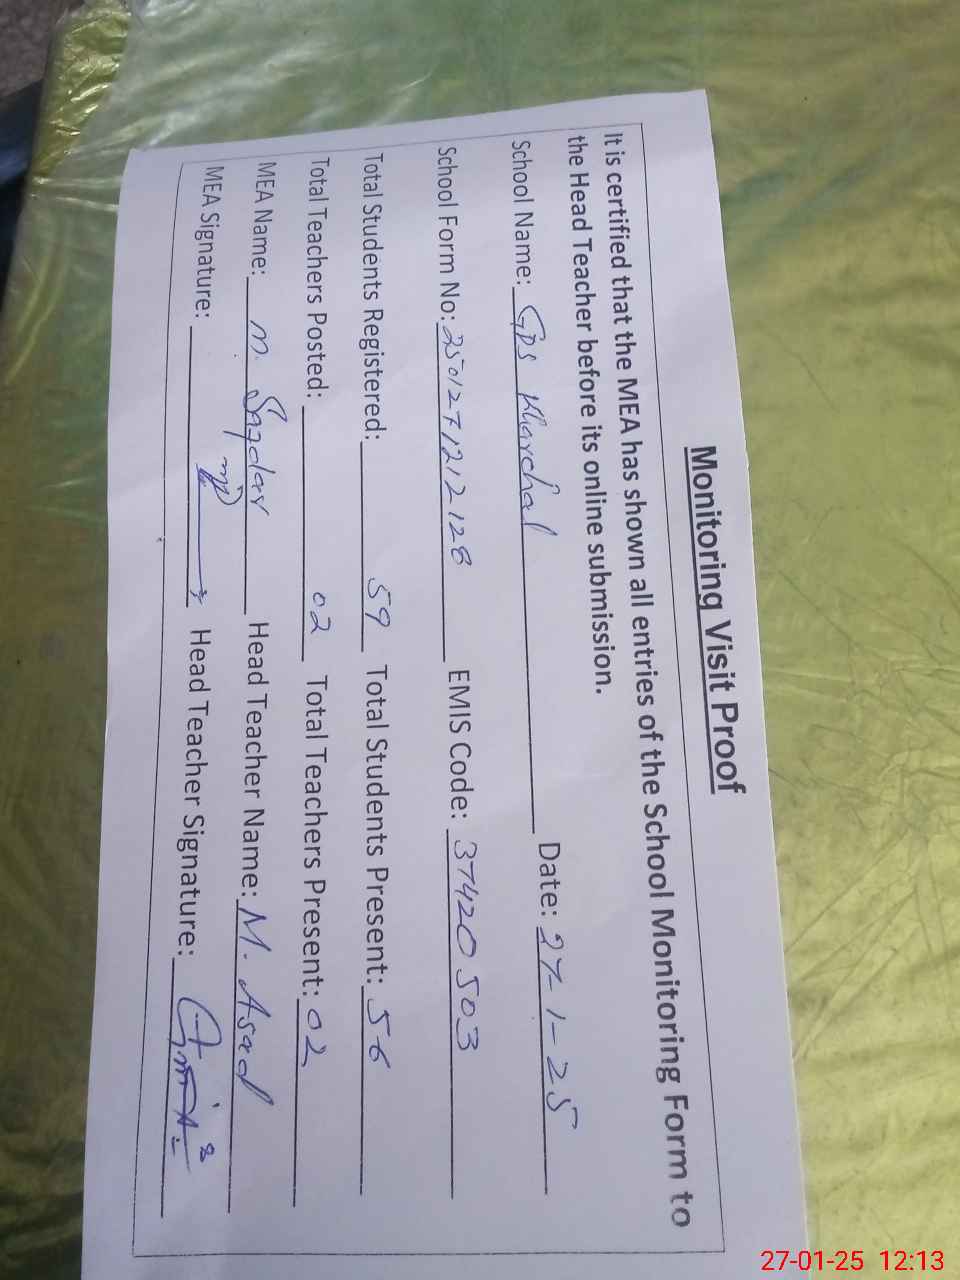 Monitoring Visit Proof
It is certified that the MEA has shown all entries of the School Monitoring Form to
the Head Teacher before its online submission.
School Name: GPS Kharchal Date: 27-1-25
School Form No: 2501271212128 EMIS Code: 37420503
Total Students Registered: 59 Total Students Present: 56
Total Teachers Posted: 02 Total Teachers Present: 02
MEA Name: M. Safdar Head Teacher Name: M. Asad
MEA Signature: Head Teacher Signature:
27-01-25 12:13